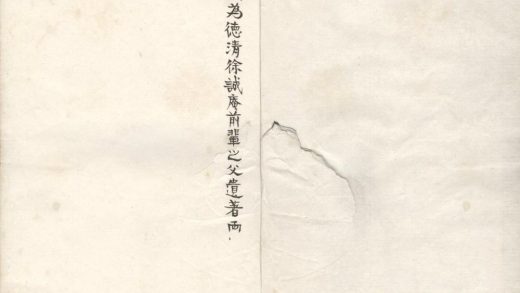 為德清徐誠庵前輩之父遺著两